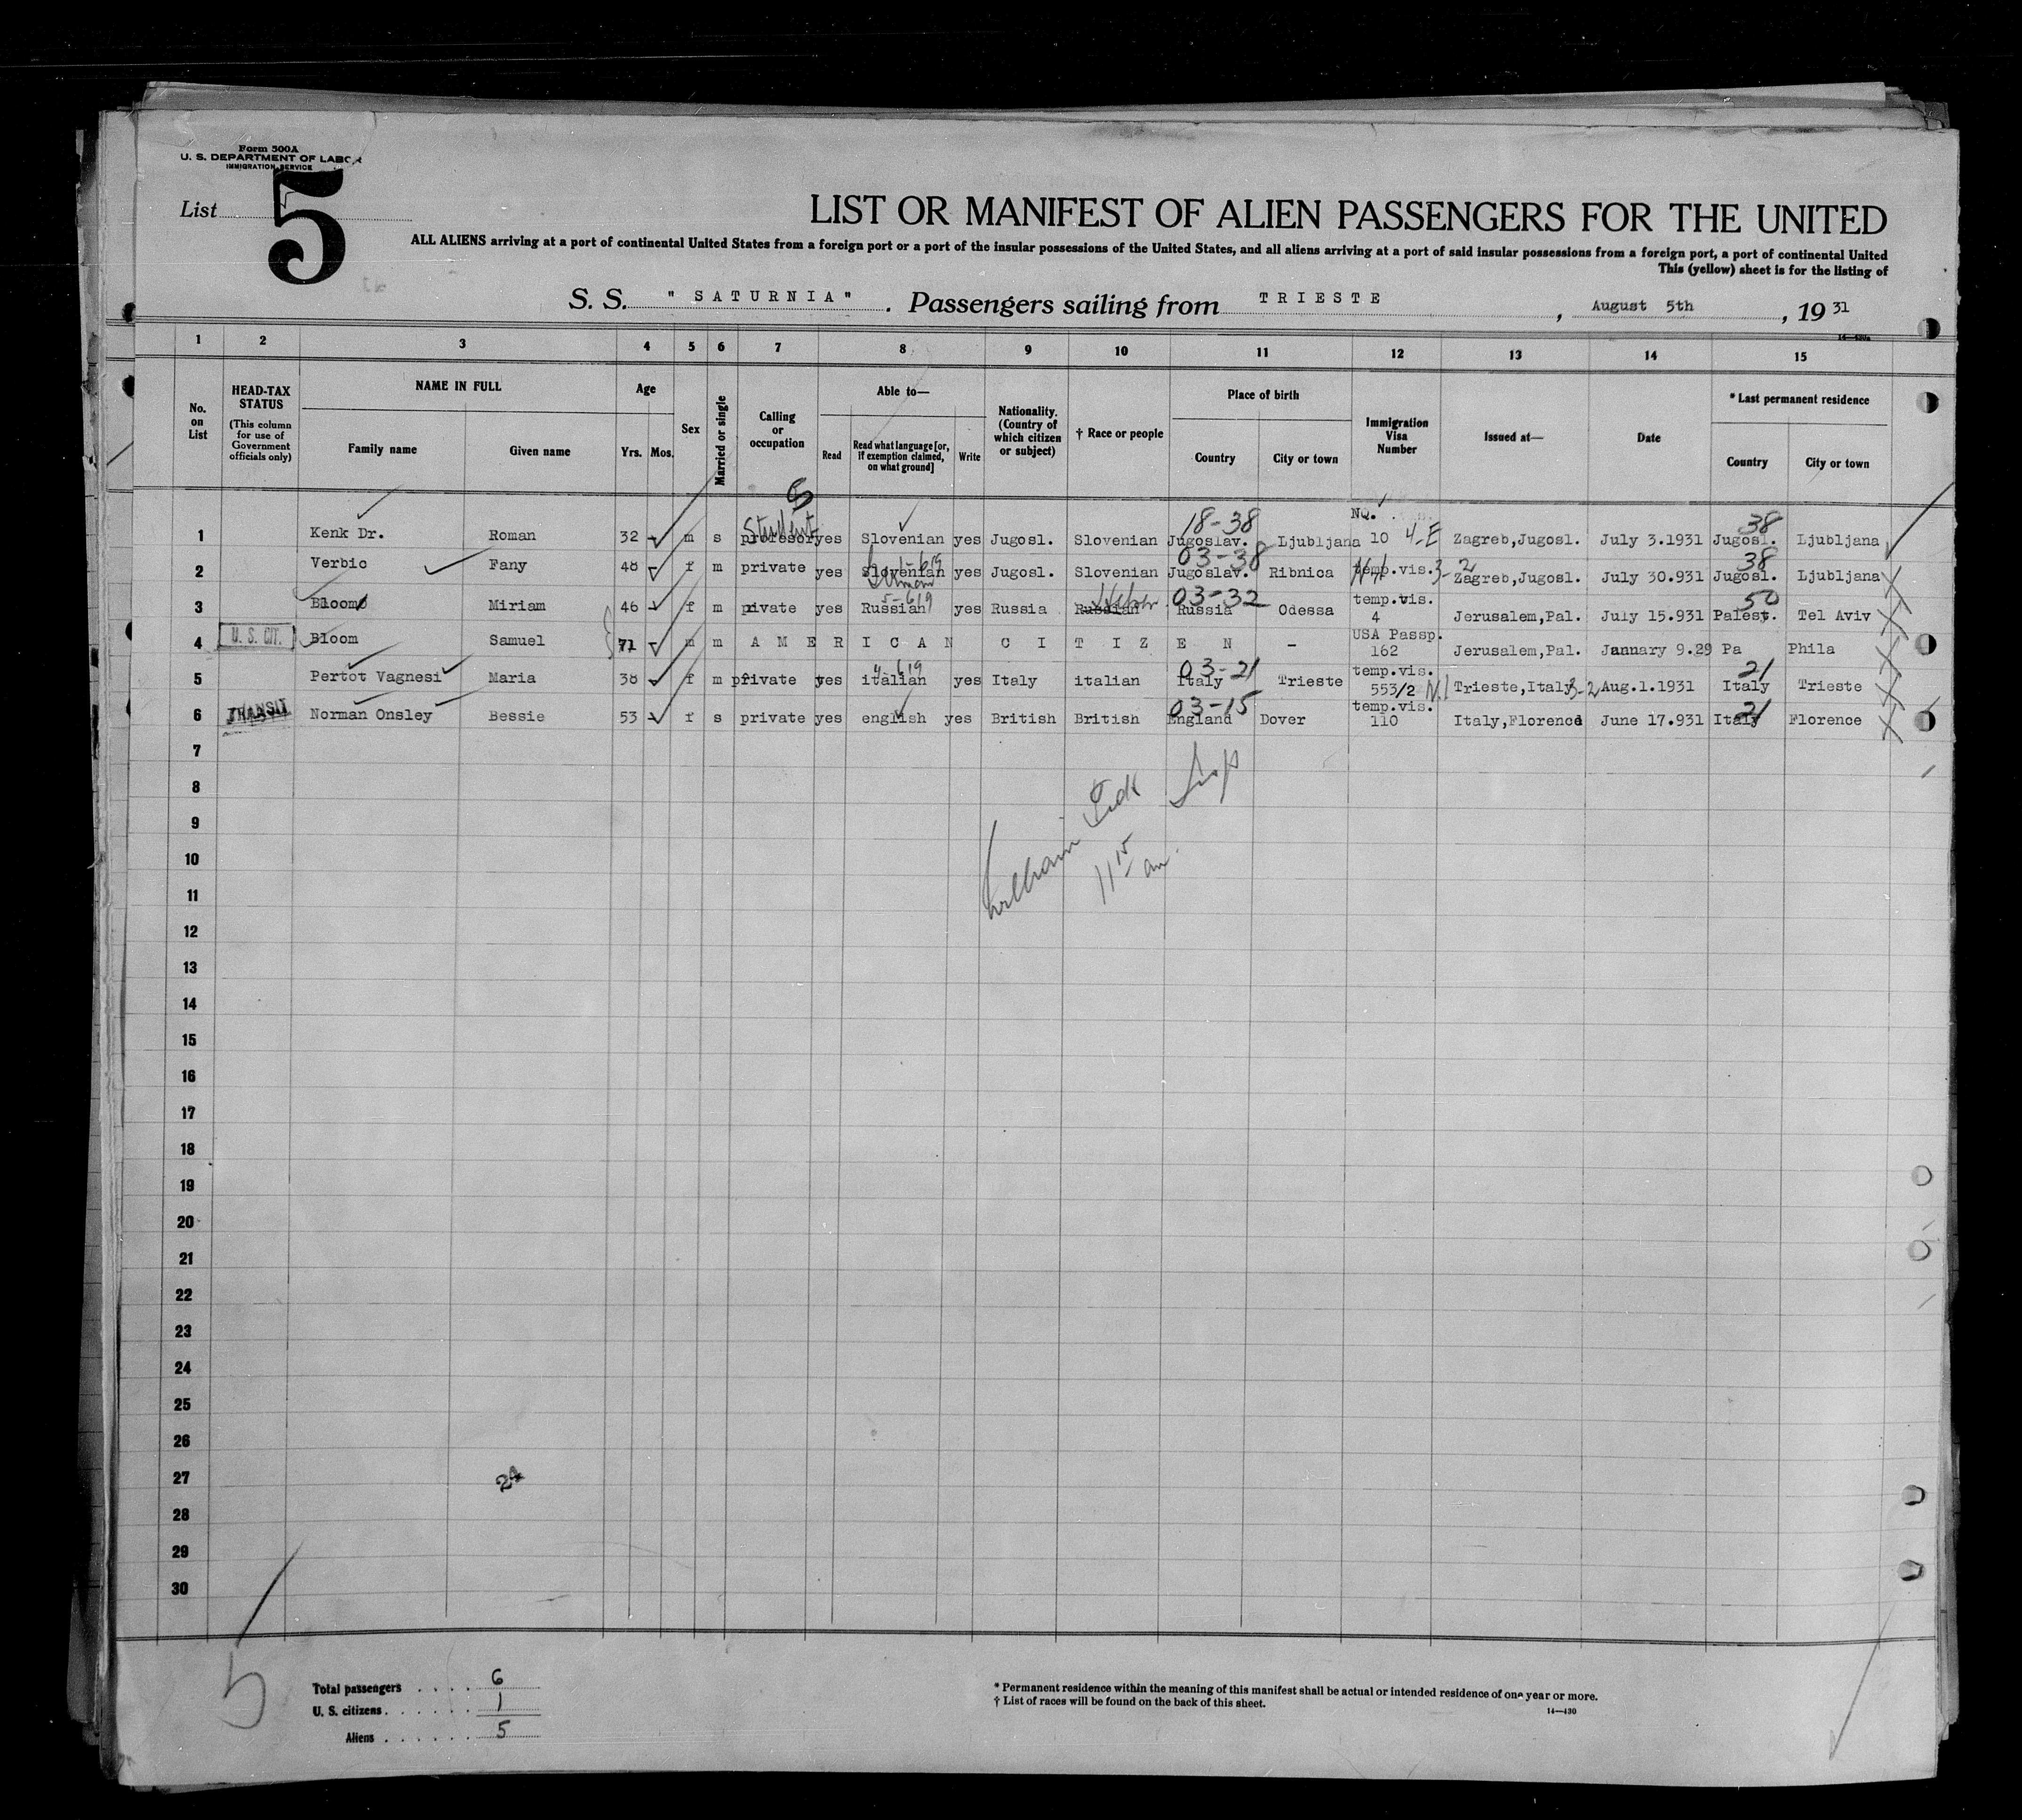 Form 500A
U. S. DEPARTMENT OF LABOR
IMMIGRATION SERVICE
List 5
LIST OR MANIFEST OF ALIEN PASSENGERS FOR THE UNITED
ALL ALIENS arriving at a port of continental United States from a foreign port or a port of the insular possessions of the United States, and all aliens arriving at a port of said insular possessions from a foreign port, a port of continental United
This (yellow) sheet is for the listing of
S. S. "SATURNIA". Passengers sailing from TRIESTE, August 5th, 1931
1 2 3 4 5 6 7 8 9 10 11 12 13 14 15
No. on List
HEAD-TAX STATUS
(This column for use of Government officials only)
NAME IN FULL
Family name Given name
Age
Yrs. Mos.
Sex
Married or single
Calling or occupation
Able to—
Read Read what language [or, if exemption claimed, on what ground] Write
Nationality. (Country of which citizen or subject)
† Race or people
Place of birth
Country City or town
Immigration Visa Number
Issued at—
Date
* Last permanent residence
Country City or town
1 Kenk Dr. Roman 32 m s profesor Student yes Slovenian yes Jugosl. Slovenian Jugoslav. 18-38 Ljubljana NQ. 10 4-E Zagreb,Jugosl. July 3.1931 Jugosl. 38 Ljubljana
2 Verbic Fany 48 f m private yes Slovenian German yes Jugosl. Slovenian Jugoslav. 03-38 Ribnica temp.vis. 3-2 Zagreb,Jugosl. July 30.931 Jugosl. 38 Ljubljana
3 Bloom Miriam 46 f m private yes Russian 5-619 yes Russia Russian Hebrew Russia 03-32 Odessa temp.vis. 4 Jerusalem,Pal. July 15.931 Palest. 50 Tel Aviv
4 U. S. CIT. Bloom Samuel 71 m m AMERICAN CITIZEN - USA Passp. 162 Jerusalem,Pal. Jannary 9.29 Pa Phila
5 Pertot Vagnesi Maria 38 f m private yes italian 4-619 yes Italy italian Italy 03-21 Trieste temp.vis. 553/2 Trieste,Italy 3-2 Aug.1.1931 Italy 21 Trieste
6 TRANSIT Norman Onsley Bessie 53 f s private yes english yes British British England 03-15 Dover temp.vis. 110 Italy,Florence June 17.931 Italy 21 Florence
7
8
9
10
11
12
13
14
15
16
17
18
19
20
21
22
23
24
25
26
27
28
29
30
William
11 15 am.
24
5
Total passengers . . . . 6
U. S. citizens . . . . . . 1
Aliens . . . . . . 5
* Permanent residence within the meaning of this manifest shall be actual or intended residence of one year or more.
† List of races will be found on the back of this sheet.
14—430